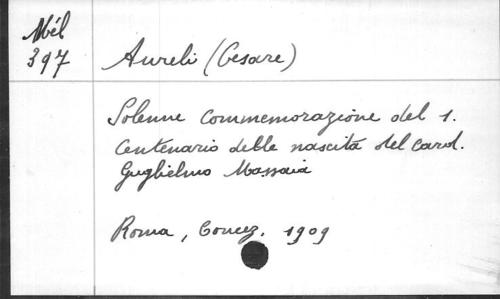 Mél
397
Aureli (Cesare)
Solenne commemorazione del 1.
Centenario delle nascita del card.
Guglielmo Massaia
Roma, Concez. 1909